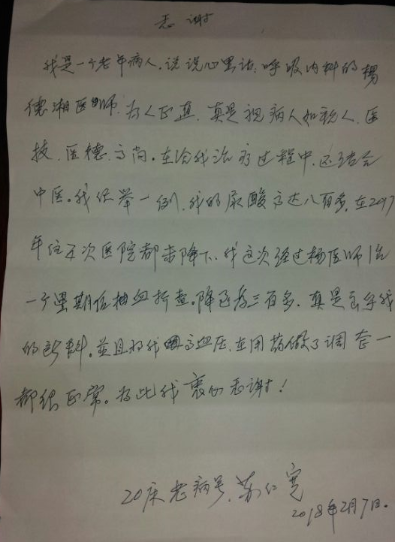 感谢
我是一个老年病人，说说心里话，呼吸内科的杨
德湘医师，为人正直，真是视病人如亲人，医
技、医德高尚。在给我治疗过程中，还结合
中医。我仅举一例，我的尿酸高达八百多，在2017
年住三次医院都未降下，我这次经过杨医师治
一个星期后抽血检查，降还为三百多，真是出乎我
的意料。并且将我的高血压，在用药做了调整一
都很正常。为此我衷心感谢！
20床老病号，苏仁宽
2018年2月7日。